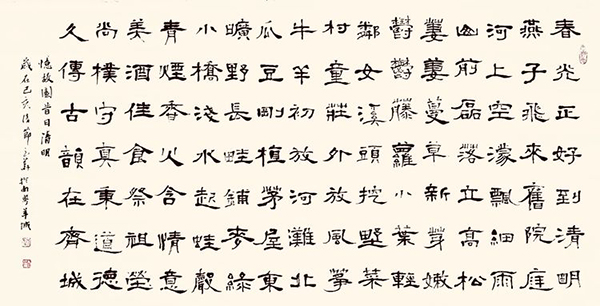 春光正好到清明
燕子飛來舊院庭
河上空濛飄細雨
山前磊落立高松
萋萋蔓草新芽嫩
鬱鬱藤蘿小葉輕
鄰女溪頭挖野菜
村童莊外放風箏
牛羊初放河灘北
瓜豆剛植茅屋東
曠野長畦鋪麥綠
小橋淺水起蛙聲
青煙香火含情意
美酒佳食祭祖塋
尚樸守真東道德
久傳古韻在齊城
憶故園昔日清明
歲在己亥清節